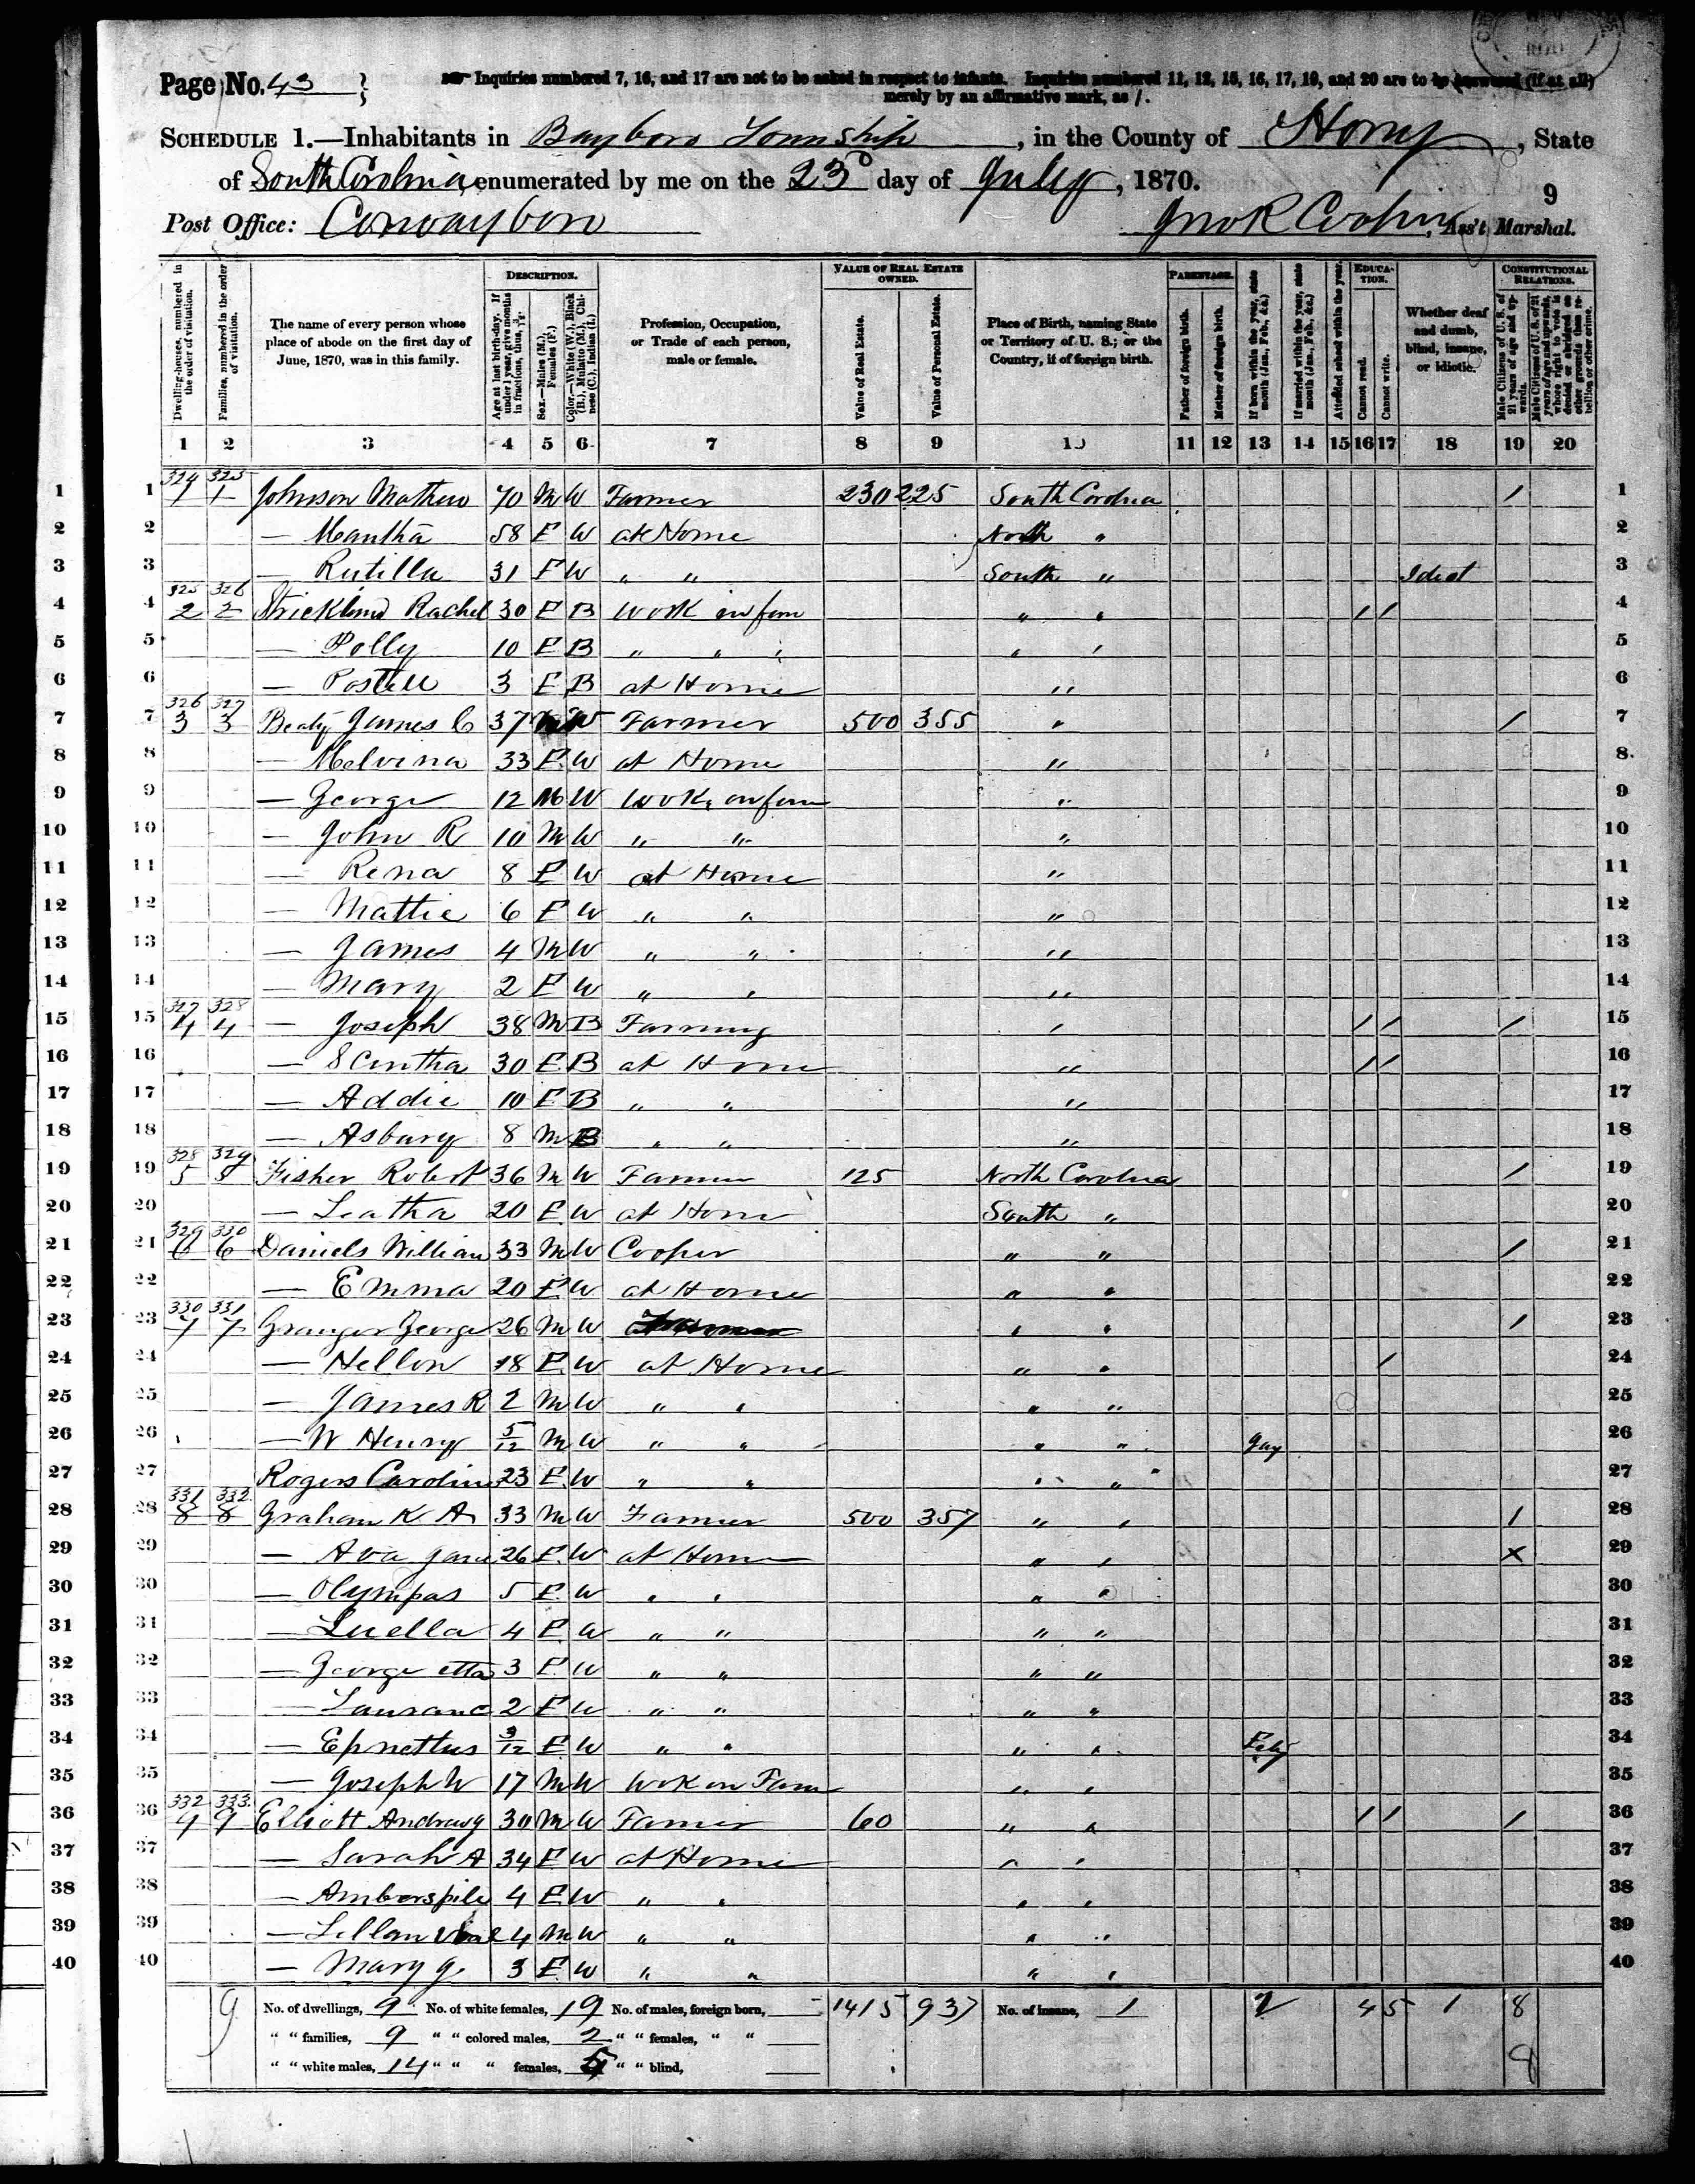 Page No. 43
Inquiries numbered 7, 16, and 17 are not to be asked in respect to infants. Inquiries numbered 11, 12, 15, 16, 17, 19, and 20 are to be answered (if at all)
merely by an affirmative mark, as /.
SCHEDULE 1.—Inhabitants in Bayboro Township, in the County of Horry, State
of South Carolina, enumerated by me on the 23d day of July, 1870.
9
Post Office: Conwayboro Jno R Cooper, Ass't Marshal.
Dwelling-houses, numbered in the order of visitation.
Families, numbered in the order of visitation.
The name of every person whose place of abode on the first day of June, 1870, was in this family.
DESCRIPTION.
Age at last birth-day. If under 1 year, give months in fractions, thus, 3/12.
Sex.—Males (M.), Females (F.)
Color.—White (W.), Black (B.), Mulatto (M.), Chinese (C.), Indian (I.)
Profession, Occupation, or Trade of each person, male or female.
VALUE OF REAL ESTATE OWNED.
Value of Real Estate.
Value of Personal Estate.
Place of Birth, naming State or Territory of U. S.; or the Country, if of foreign birth.
PARENTAGE.
Father of foreign birth.
Mother of foreign birth.
If born within the year, state month (Jan., Feb., &c.)
If married within the year, state month (Jan., Feb., &c.)
Attended school within the year.
EDUCATION.
Cannot read.
Cannot write.
Whether deaf and dumb, blind, insane, or idiotic.
CONSTITUTIONAL RELATIONS.
Male Citizens of U. S. of 21 years of age and upwards.
Male Citizens of U. S. of 21 years of age and upwards, whose right to vote is denied or abridged on other grounds than rebellion or other crime.
1 2 3 4 5 6 7 8 9 10 11 12 13 14 15 16 17 18 19 20
324 325
1 1 1 1 Johnson Mathew 70 M W Farmer 230 225 South Carolina / 1
2 2 — Mantha 58 F W at Home North " 2
3 3 — Rutilla 31 F W " " South " Idiot 3
325 326
4 4 2 2 Strickland Rachel 30 F B Work on farm " " / / 4
5 5 — Polly 10 F B " " " " " 5
6 6 — Postell 3 F B at Home " 6
326 327
7 7 3 3 Beaty James C 37 M W Farmer 500 355 " / 7
8 8 — Melvina 33 F W at Home " 8
9 9 — George 12 M W Work on farm " 9
10 10 — John R 10 M W " " " 10
11 11 — Rena 8 F W at Home " 11
12 12 — Mattie 6 F W " " " 12
13 13 — James 4 M W " " " 13
14 14 — Mary 2 F W " " " 14
327 328
15 15 4 4 — Joseph 38 M B Farming " / / / 15
16 16 — Scintha 30 F B at Home " / / 16
17 17 — Addie 10 F B " " " 17
18 18 — Asbury 8 M B " " " 18
328 329
19 19 5 5 Fisher Robert 36 M W Farmer 125 North Carolina / 19
20 20 — Leatha 20 F W at Home South " 20
329 330
21 21 6 6 Daniels William 33 M W Cooper " " / 21
22 22 — Emma 20 F W at Home " " 22
330 331
23 23 7 7 Granger George 26 M W " " / 23
24 24 — Hellon 18 F W at Home " " / 24
25 25 — James R 2 M W " " " " 25
26 26 — W Henry 5/12 M W " " " " 26
27 27 Rogers Caroline 23 F W " " " " 27
331 332
28 28 8 8 Graham K A 33 M W Farmer 500 357 " " / 28
29 29 — Ava Jane 26 F W at Home " " X 29
30 30 — Olympas 5 F W " " " " 30
31 31 — Luella 4 F W " " " " 31
32 32 — George etta 3 F W " " " " 32
33 33 — Lauranc 2 F W " " " " 33
34 34 — Epnettus 3/12 F W " " " " Feby 34
35 35 — Joseph W 17 M W Wok on Farm " " 35
332 333
36 36 9 9 Elliott Andrew J 30 M W Farmer 60 " " / / / 36
37 37 — Sarah A 34 F W at Home " " 37
38 38 — 4 F W " " " " 38
39 39 — 4 M W " " " " 39
40 40 — Mary J. 3 F W " " " " 40
9 No. of dwellings, 9 No. of white females, 19 No. of males, foreign born, — 1415 937 No. of insane, 1 2 4 5 1 8
" " families, 9 " " colored males, 2 " " females, " "
" " white males, 14 " " " females, 5 " " blind, 8